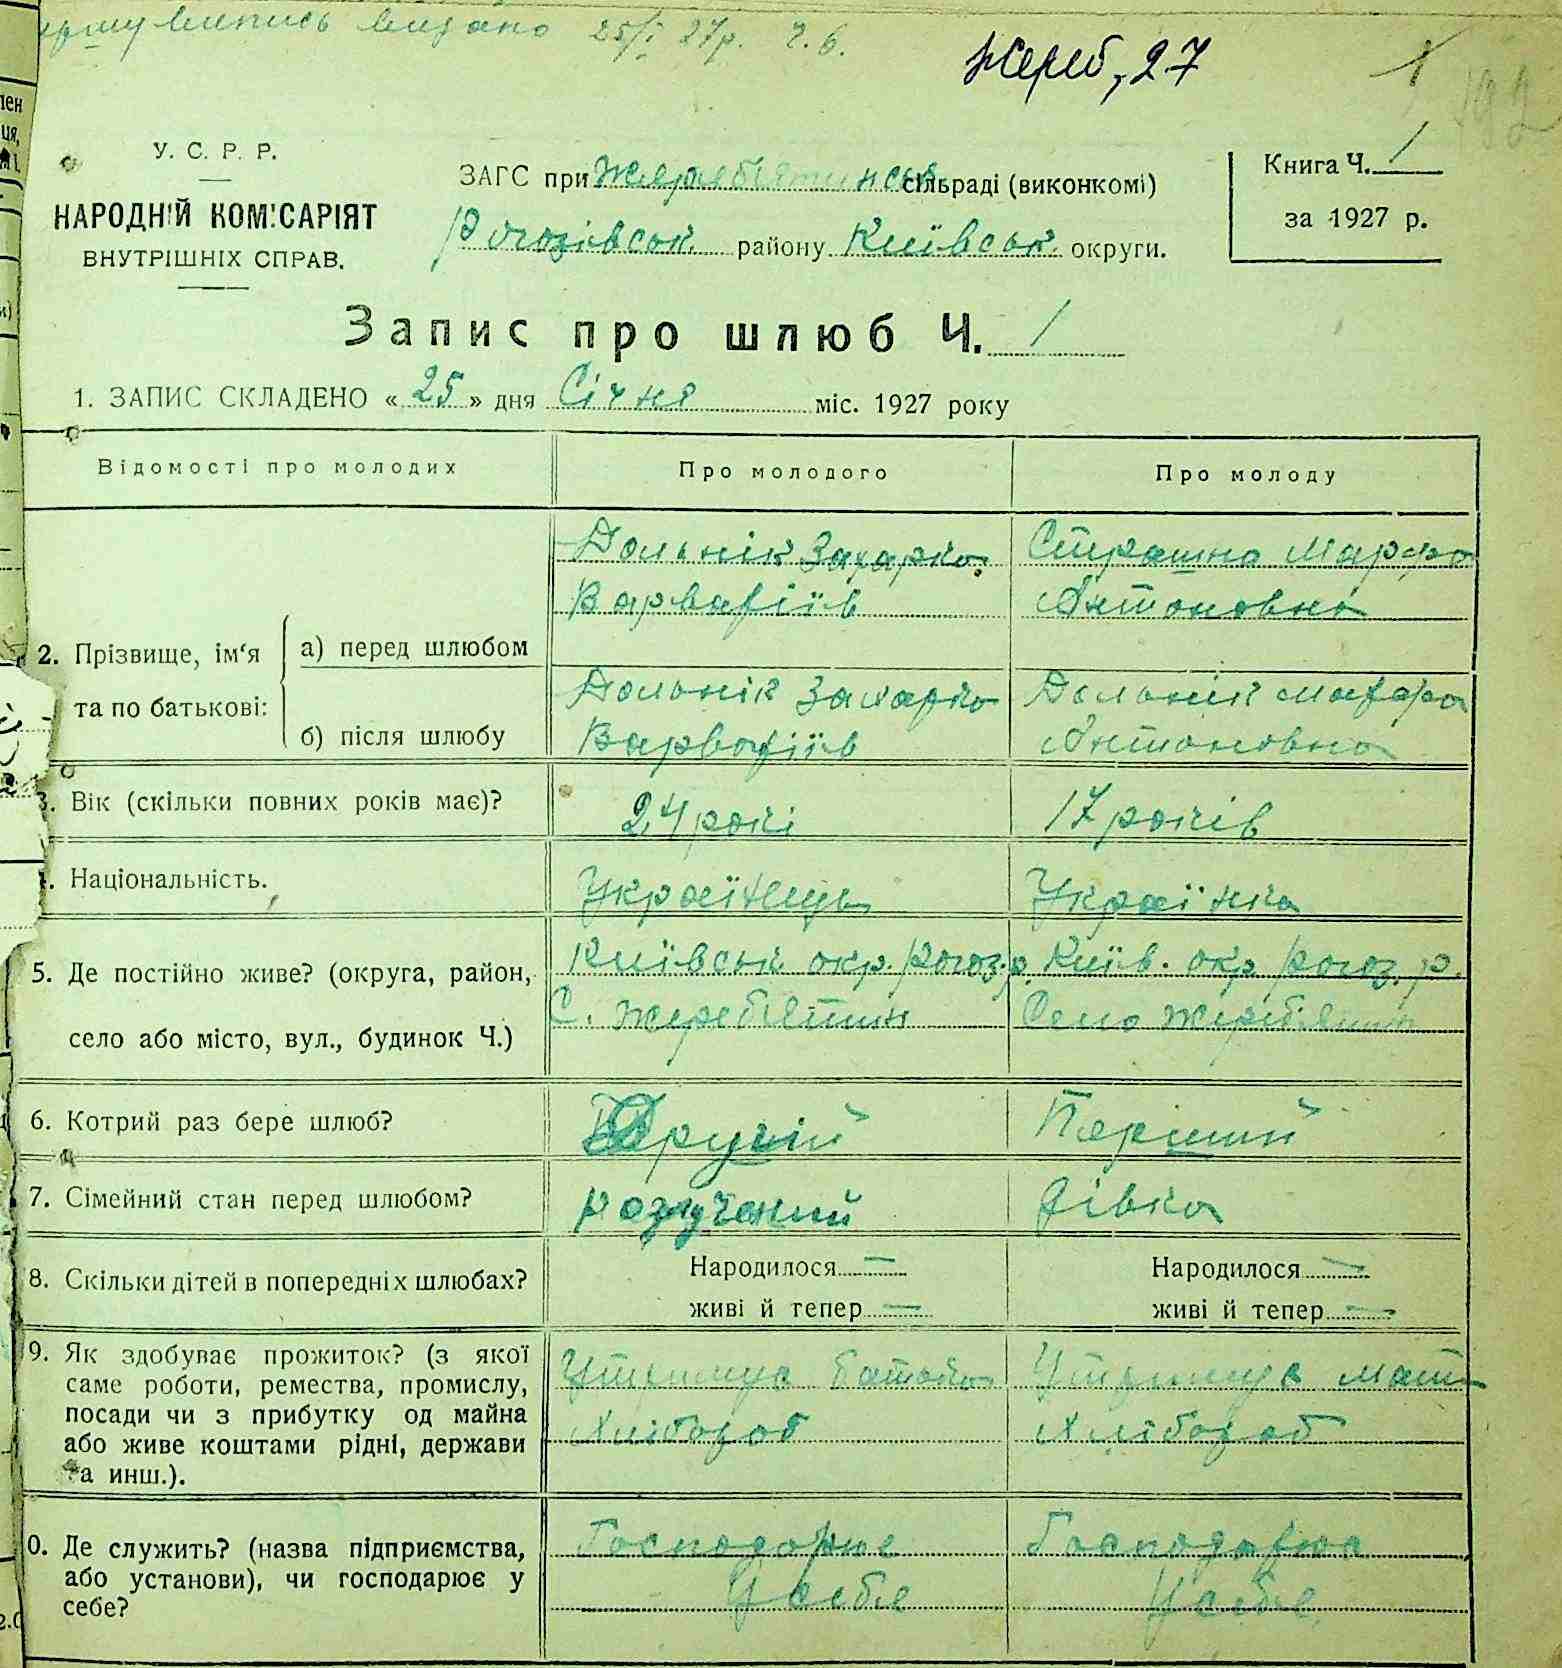 випись видано 25/I 27р. Ч. 6.
Жереб, 27
1
192
У. С. Р. Р.
НАРОДНІЙ КОМІСАРІЯТ
ВНУТРІШНІХ СПРАВ.
ЗАГС при Жеребятинськ сільраді (виконкомі)
Рогозівськ. району Київськ. округи.
Книга Ч. 1
за 1927 р.
Запис про шлюб Ч. 1
1. ЗАПИС СКЛАДЕНО « 25 » дня Січня міс. 1927 року
Відомості про молодих
Про молодого
Про молоду
2. Прізвище, ім'я та по батькові:
а) перед шлюбом
Дольнік Захарко
Варваріїв
Страшно Марфа
Антоновна
б) після шлюбу
Дольнік Захарко
Варваріїв
Дольнік Марфа
Антоновна
3. Вік (скільки повних років має)?
24 рокі
17 років
4. Національність.
Українець
Українка
5. Де постійно живе? (округа, район,
село або місто, вул., будинок Ч.)
Київськ. окр. Рогоз. р.
С. Жеребятин
Київ. окр. Рогоз. р.
Село Жеребятин
6. Котрий раз бере шлюб?
Другій
Перший
7. Сімейний стан перед шлюбом?
розлучений
дівка
8. Скільки дітей в попередніх шлюбах?
Народилося —
живі й тепер —
Народилося —
живі й тепер —
9. Як здобуває прожиток? (з якої
саме роботи, ремества, промислу,
посади чи з прибутку од майна
або живе коштами рідні, держави
та инш.).
Утримує батько
Хлібороб
Утримує мати
Хлібороб
0. Де служить? (назва підприємства,
або установи), чи господарює у
себе?
Господарює
У себе
Господарює
У себе